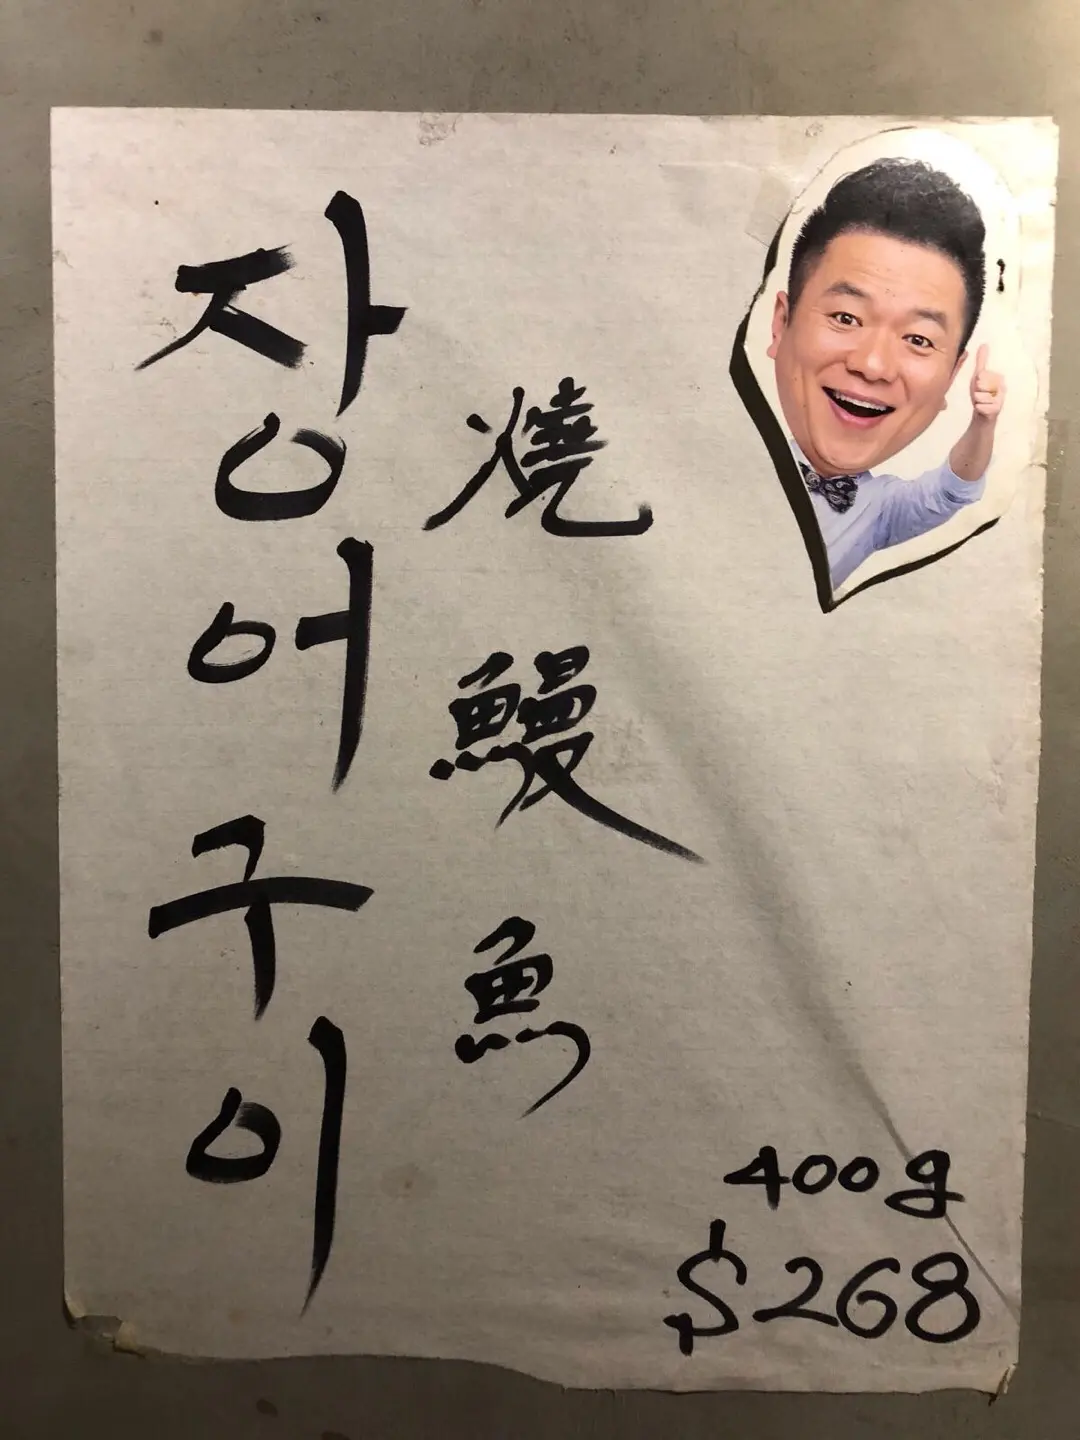 장어구이
燒鰻魚
400g
$268